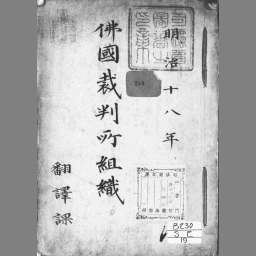 明治十八年
佛國裁判所組織
翻譯課
BE30
S E
19